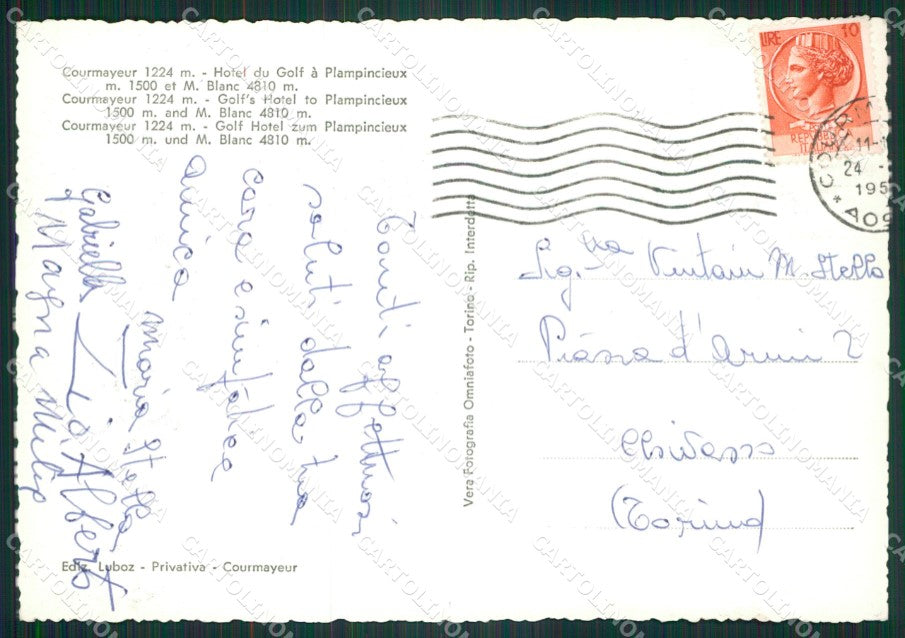 Courmayeur 1224 m. - Hotel du Golf à Plampincieux
m. 1500 et M. Blanc 4810 m.
Courmayeur 1224 m. - Golf's Hotel to Plampincieux
1500 m. and M. Blanc 4810 m.
Courmayeur 1224 m. - Golf Hotel zum Plampincieux
1500 m. und M. Blanc 4810 m.
Tanti affettuosi
saluti dalla tua
cara e
amica
Maria Stella
Gabriella
Zio Alberto
Magna
Ediz. Luboz - Privativa - Courmayeur
Vera Fotografia Omniafoto - Torino - Rip. Interdetta
LIRE 10
11-
24
195
AOS
Sig.na M. Stella
Piazza d'Armi 2
Chivasso
(Torino)
CARTOLINOMANIA